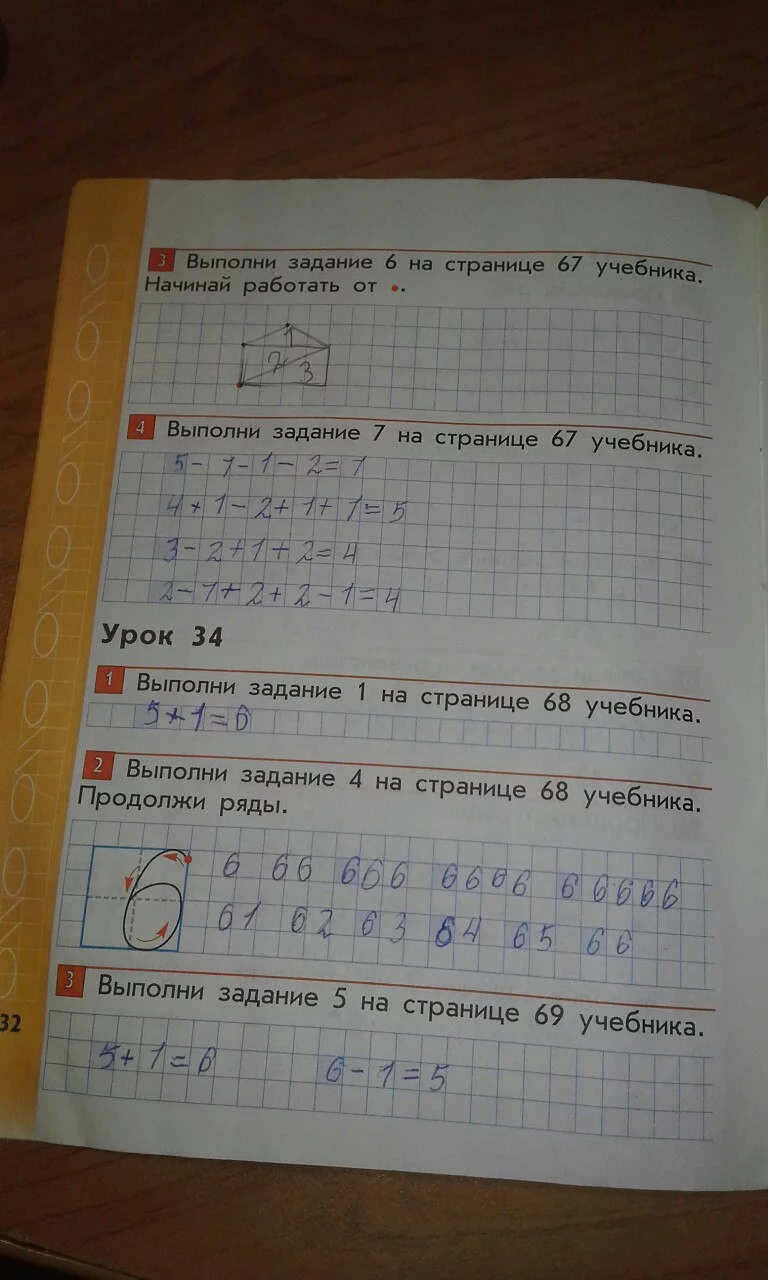 3 Выполни задание 6 на странице 67 учебника.
Начинай работать от •.
1
2 3
4 Выполни задание 7 на странице 67 учебника.
5-1-1-2=1
4+1-2+1+1=5
3-2+1+2=4
2-1+2+2-1=4
Урок 34
1 Выполни задание 1 на странице 68 учебника.
5+1=6
2 Выполни задание 4 на странице 68 учебника.
Продолжи ряды.
6 6 66 666 6666 66666
61 62 63 64 65 66
3 Выполни задание 5 на странице 69 учебника.
32
5+1=6 6-1=5